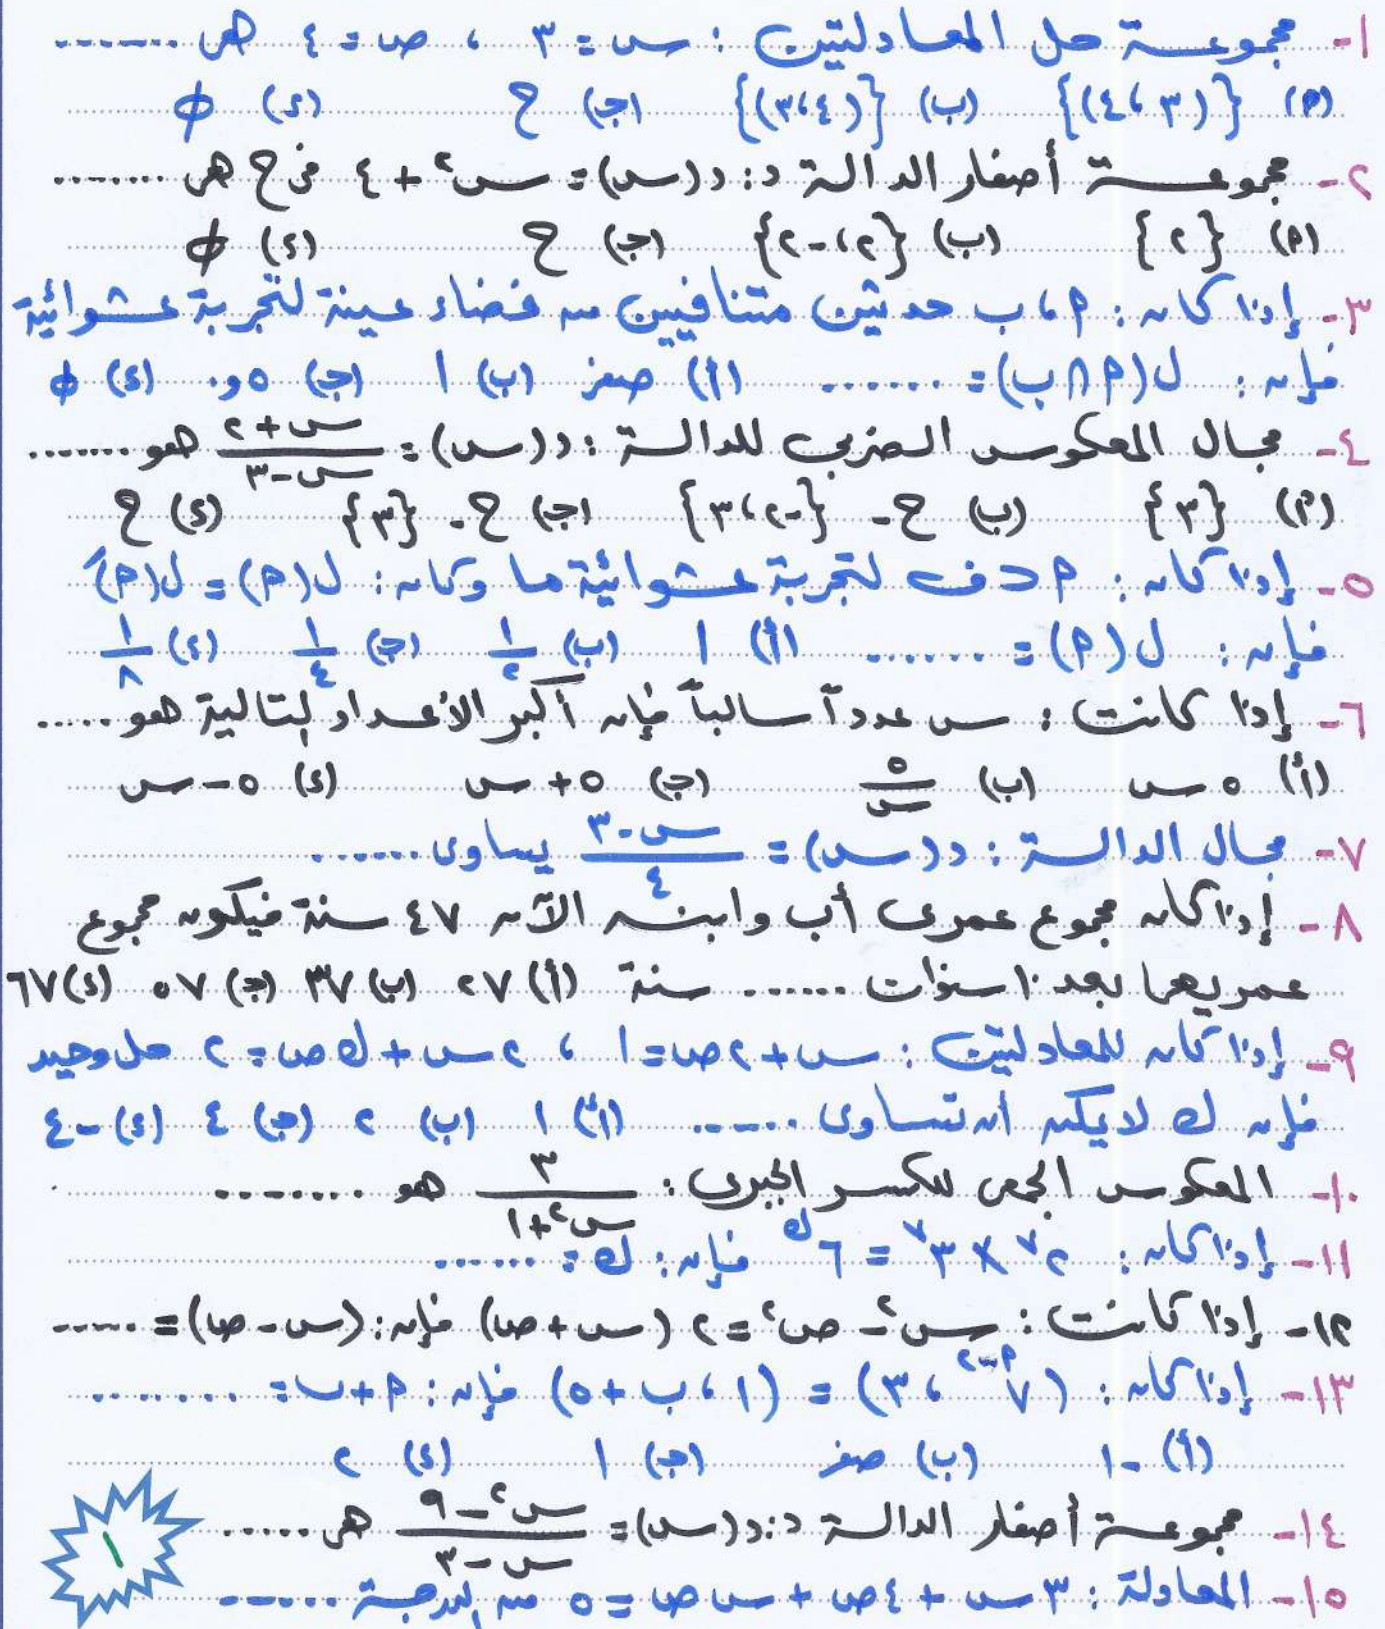 ١- مجموعة حل المعادلتين : س = ٣ ، ص = ٤ هى .......
(أ) {(٣ ، ٤)} (ب) {(٤ ، ٣)} (جـ) ح (د) ∅
٢- مجموعة أصفار الدالة د : د(س) = س٢ + ٤ فى ح هى .......
(أ) {٢} (ب) {٢ ، -٢} (جـ) ح (د) ∅
٣- إذا كان : أ ، ب حدثين متنافيين من فضاء عينة لتجربة عشوائية
فإن : ل(أ ∩ ب) = ....... (أ) صفر (ب) ١ (جـ) ٥و٠ (د) ∅
٤- مجال المعكوس الضربى للدالة : د(س) = (س + ٢)/(س - ٣) هو .......
(أ) {٣} (ب) ح - {-٢ ، ٣} (جـ) ح - {٣} (د) ح
٥- إذا كان : أ ⊂ ف لتجربة عشوائية ما وكان : ل(أ) = ل(أَ)
فإن : ل(أ) = ....... (أ) ١ (ب) ١/٢ (جـ) ١/٤ (د) ١/٨
٦- إذا كانت : س عدداً سالباً فإن أكبر الأعداد التالية هو .....
(أ) ٥ س (ب) ٥/س (جـ) ٥ + س (د) ٥ - س
٧- مجال الدالة : د(س) = (س - ٣)/٤ يساوى ......
٨- إذا كان مجموع عمرى أب وابنه الآن ٤٧ سنة فيكون مجموع
عمريهما بعد ١٠ سنوات ...... سنة (أ) ٢٧ (ب) ٣٧ (جـ) ٥٧ (د) ٦٧
٩- إذا كان للمعادلتين : س + ٢ص = ١ ، ٢س + ك ص = ٢ حل وحيد
فإن ك لا يمكن أن تساوى ...... (أ) ١ (ب) ٢ (جـ) ٤ (د) -٤
١٠- المعكوس الجمعى للكسر الجبرى : ٣/(س٢ + ١) هو ........
١١- إذا كان : ٢^٧ × ٣^٧ = ٦^ك فإن : ك = .......
١٢- إذا كانت : س٢ - ص٢ = ٢ (س + ص) فإن : (س - ص) = ......
١٣- إذا كان : (٧^(أ-٢) ، ٣) = (١ ، ب + ٥) فإن : أ + ب = ........
(أ) -١ (ب) صفر (جـ) ١ (د) ٢
١٤- مجموعة أصفار الدالة د : د(س) = (س٢ - ٩)/(س - ٣) هى .....
١٥- المعادلة : ٣ س + ٤ ص + س ص = ٥ من الدرجة ......
١